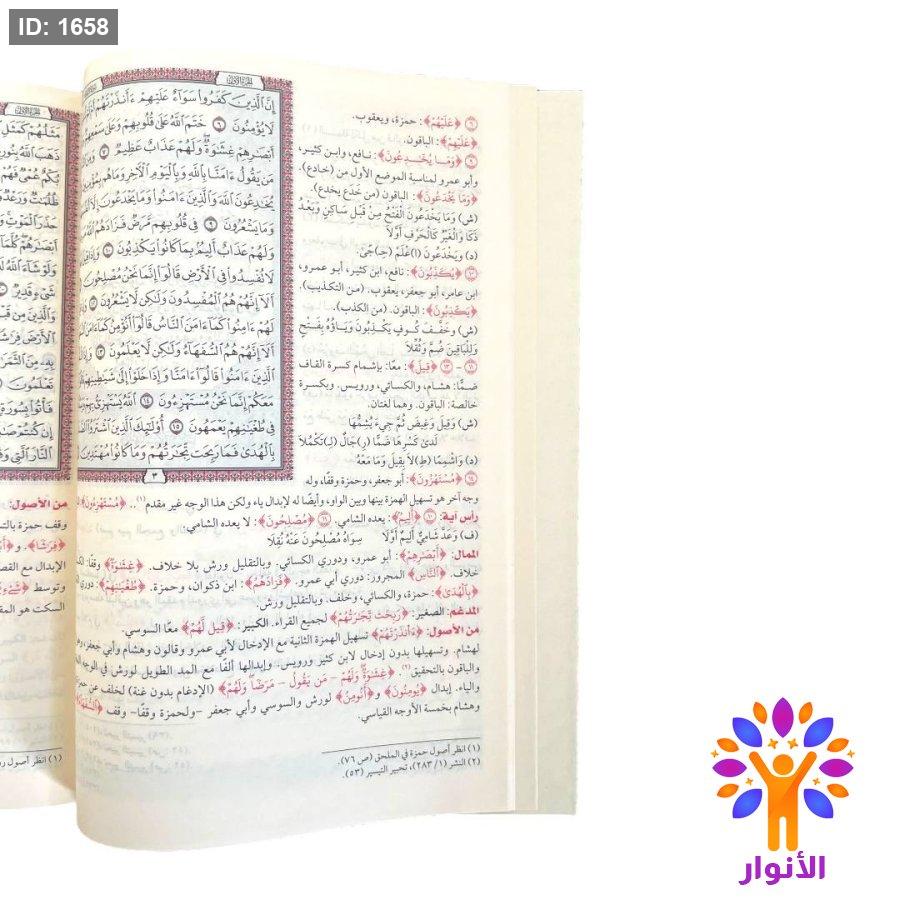 ID: 1658
إِنَّ الَّذِينَ كَفَرُوا سَوَاءٌ عَلَيْهِمْ ءَأَنذَرْتَهُمْ
لَا يُؤْمِنُونَ ٦ خَتَمَ اللَّهُ عَلَى قُلُوبِهِمْ وَعَلَى سَمْعِهِمْ
أَبْصَارِهِمْ غِشَاوَةٌ وَلَهُمْ عَذَابٌ عَظِيمٌ ٧
مَن يَقُولُ ءَامَنَّا بِاللَّهِ وَبِالْيَوْمِ الْآخِرِ وَمَاهُم بِمُؤْمِنِينَ
يُخَادِعُونَ اللَّهَ وَالَّذِينَ ءَامَنُوا وَمَا يَخْدَعُونَ
وَمَا يَشْعُرُونَ ٩ فِي قُلُوبِهِم مَّرَضٌ فَزَادَهُمُ
وَلَهُمْ عَذَابٌ أَلِيمٌ بِمَا كَانُوا يَكْذِبُونَ ١٠
لَا تُفْسِدُوا فِي الْأَرْضِ قَالُوا إِنَّمَا نَحْنُ مُصْلِحُونَ
أَلَا إِنَّهُمْ هُمُ الْمُفْسِدُونَ وَلَٰكِن لَّا يَشْعُرُونَ
لَهُمْ ءَامِنُوا كَمَا ءَامَنَ النَّاسُ قَالُوا أَنُؤْمِنُ كَمَا
أَلَا إِنَّهُمْ هُمُ السُّفَهَاءُ وَلَٰكِن لَّا يَعْلَمُونَ ١٣
الَّذِينَ ءَامَنُوا قَالُوا ءَامَنَّا وَإِذَا خَلَوْا إِلَى شَيَاطِينِهِمْ
مَعَكُمْ إِنَّمَا نَحْنُ مُسْتَهْزِءُونَ ١٤ اللَّهُ يَسْتَهْزِئُ بِهِمْ
فِي طُغْيَانِهِمْ يَعْمَهُونَ ١٥ أُولَٰئِكَ الَّذِينَ اشْتَرَوُا
بِالْهُدَى فَمَا رَبِحَت تِّجَارَتُهُمْ وَمَا كَانُوا مُهْتَدِينَ
٣
﴿عَلَيْهُمْ﴾: حمزة، ويعقوب.
﴿عَلَيْهِمْ﴾: الباقون.
٩ ﴿وَمَا يُخَـٰدِعُونَ﴾: نافع، وابن كثير،
وأبو عمرو لمناسبة الموضع الأول من (خادع).
﴿وَمَا يَخْدَعُونَ﴾: الباقون (من خَدَع يخدع).
(ش) وَمَا يَخْدَعُونَ الْفَتْحُ مِنْ قَبْلِ سَاكِنٍ وَبَعْدُ
ذَكَا وَالْغَيْرُ كَالْحَرْفِ أَوَّلَا
(د) وَيَخْدَعُونَ (ا)عْلَمْ (حِ)جًى.
١٠ ﴿يُكَذِّبُونَ﴾: نافع، ابن كثير، أبو عمرو،
ابن عامر، أبو جعفر، يعقوب. (من التكذيب).
﴿يَكْذِبُونَ﴾: الباقون. (من الكذب).
(ش) وَخَفَّفَ كُوفٍ يَكْذِبُونَ وَيَاؤُهُ بِفَتْحٍ
وَلِلْبَاقِينَ ضُمَّ وَثُقِّلَا
١١ - ١٣ ﴿قِيلَ﴾: معًا: بإشمام كسرة القاف
ضمًّا: هشام، والكسائي، ورويس. وبكسرة
خالصة: الباقون. وهما لغتان.
(ش) وَقِيلَ وَغِيضَ ثُمَّ جِيءَ يُشِمُّهَا
لَدَى كَسْرِهَا ضَمًّا (رِ)جَالٌ (لِـ)تَكْمُلَا
(د) وَاشْمِمًا (طِ)لَا بِقِيلَ وَمَا مَعْهُ
١٤ ﴿مُسْتَهْزُونَ﴾: أبو جعفر، وحمزة وقفًا، وله
وجه آخر هو تسهيل الهمزة بينها وبين الواو، وأيضًا له لإبدال ياء ولكن هذا الوجه غير مقدم(١).. ﴿مُسْتَهْزِءُونَ﴾:
رأس آية: ١٠ ﴿أَلِيمٌ﴾: يعده الشامي. ١١ ﴿مُصْلِحُونَ﴾: لا يعده الشامي.
(ف) وَعَدَّ شَامِيُّ أَلِيمٌ أَوَّلَا سِوَاهُ مُصْلِحُونَ عَنْهُ نُقِلَا
الممال: ﴿أَبْصَٰرِهِمْ﴾: أبو عمرو، ودوري الكسائي. وبالتقليل ورش بلا خلاف. ﴿غِشَٰوَةٌ﴾ وقفًا:
خلاف. ﴿النَّاسِ﴾ المجرور: دوري أبي عمرو. ﴿فَزَادَهُمُ﴾: ابن ذكوان، وحمزة. ﴿طُغْيَٰنِهِمْ﴾: دوري
﴿بِالْهُدَىٰ﴾: حمزة، والكسائي، وخلف. وبالتقليل ورش.
المدغم: الصغير: ﴿رَبِحَت تِّجَٰرَتُهُمْ﴾ لجميع القراء. الكبير: ﴿قِيلَ لَهُمْ﴾ معًا السوسي.
من الأصول: ﴿ءَأَنذَرْتَهُمْ﴾ تسهيل الهمزة الثانية مع الإدخال لأبي عمرو وقالون وهشام وأبي جعفر،
لهشام. وتسهيلها بدون إدخال لابن كثير ورويس. وإبدالها ألفًا مع المد الطويل لورش في الوجه
والباقون بالتحقيق(٢). ﴿غِشَٰوَةٌ وَلَهُمْ - مَن يَقُولُ - مَرَضًا وَلَهُمْ﴾ (الإدغام بدون غنة) لخلف عن
والياء. إبدال ﴿يُومِنُونَ﴾ و﴿أَنُومِنُ﴾ لورش والسوسي وأبي جعفر -ولحمزة وقفًا- وقف ﴿السُّفَهَاءُ﴾
وهشام بخمسة الأوجه القياسي.
(١) انظر أصول حمزة في الملحق (ص ٧٦).
(٢) النشر (١/ ٢٨٣)، تحبير التيسير (٥٣).
مَثَلُهُمْ كَمَثَلِ
ذَهَبَ اللَّهُ بِنُورِ
بُكْمٌ عُمْيٌ فَهُمْ
ظُلُمَاتٌ وَرَعْدٌ
حَذَرَ الْمَوْتِ
أَبْصَارَهُمْ كُلَّمَا
وَلَوْ شَاءَ اللَّهُ
شَيْءٍ قَدِيرٌ
وَالَّذِينَ مِن
الْأَرْضَ
بِهِ مِنَ الثَّمَرَ
تَعْلَمُونَ
فَأْتُوا بِسُورَةٍ
إِن كُنتُمْ
النَّارَ الَّتِي
من الأصول:
وقف حمزة
﴿فِرَٰشًا﴾. و
الإبدال مع
وتوسط ﴿شَيْءٍ﴾
السكت هو
(١) انظر أصول
الأنوار